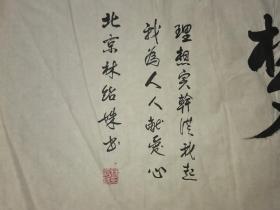 理想实干从我起
我为人人献爱心
北京林绍姝书